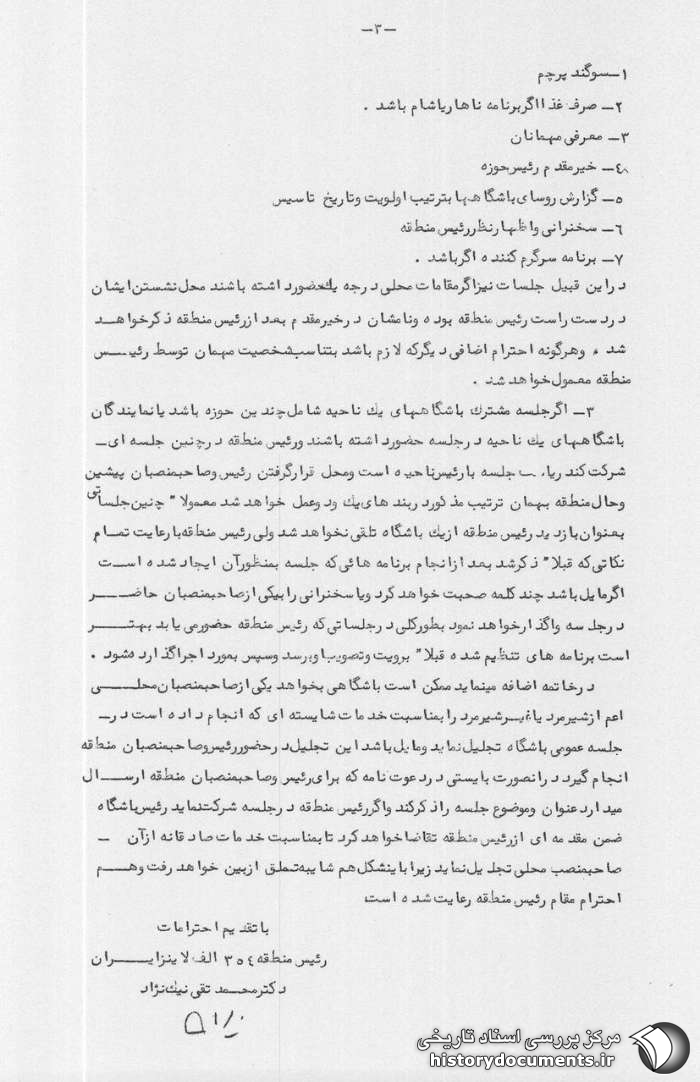 -۳-
۱-سوگند پرچم
۲- صرف غذا اگر برنامه ناهار یا شام باشد .
۳- معرفی مهمانان
۴- خیر مقدم رئیس حوزه
۵- گزارش روسای باشگاهها بترتیب اولویت وتاریخ تاسیس
۶- سخنرانی واظهار نظر رئیس منطقه
۷- برنامه سرگرم کننده اگر باشد .
در این قبیل جلسات نیز اگر مقامات محلی درجه یک حضور داشته باشند محل نشستن ایشان
در دست راست رئیس منطقه بوده ونامشان در خیر مقدم بعد از رئیس منطقه ذکر خواهد
شد ، وهرگونه احترام اضافی دیگر که لازم باشد بتناسب شخصیت مهمان توسط رئیس
منطقه معمول خواهد شد .
۳- اگر جلسه مشترک باشگاههای یک ناحیه شامل چندین حوزه باشد یا نمایندگان
باشگاههای یک ناحیه در جلسه حضور داشته باشند ورئیس منطقه در چنین جلسه ای-
شرکت کند ریاست جلسه با رئیس ناحیه است ومحل قرار گرفتن رئیس وصاحبمنصبان پیشین
وحال منطقه بهمان ترتیب مذکور در بند های یک ودو عمل خواهد شد معمولا" چنین جلساتی
بعنوان بازدید رئیس منطقه از یک باشگاه تلقی نخواهد شد ولی رئیس منطقه با رعایت تمام
نکاتی که قبلا" ذکر شد بعد از انجام برنامه هائی که جلسه بمنظور آن ایجاد شده است
اگر مایل باشد چند کلمه صحبت خواهد کرد ویا سخنرانی را بیکی از صاحبمنصبان حاضر
در جلسه واگذار خواهد نمود بطور کلی در جلساتی که رئیس منطقه حضور می یابد بهتر
است برنامه های تنظیم شده قبلا" برویت وتصویب او برسد وسپس بمورد اجرا گذارده شود .
در خاتمه اضافه مینماید ممکن است باشگاهی بخواهد یکی از صاحبمنصبان محلی
اعم از شیر مرد یا غیر شیر مرد را بمناسبت خدمات شایسته ای که انجام داده است در-
جلسه عمومی باشگاه تجلیل نماید ومایل باشد این تجلیل در حضور رئیس وصاحبمنصبان منطقه
انجام گیرد در انصورت بایستی در دعوت نامه که برای رئیس وصاحبمنصبان منطقه ارسال
میدارد عنوان وموضوع جلسه را ذکر کند واگر رئیس منطقه در جلسه شرکت نماید رئیس باشگاه
ضمن مقدمه ای از رئیس منطقه تقاضا خواهد کرد تا بمناسبت خدمات صادقانه از آن -
صاحبمنصب محلی تجلیل نماید زیرا باینشکل هم شایبه تملق از بین خواهد رفت وهم
احترام مقام رئیس منطقه رعایت شده است
با تقدیم احترامات
رئیس منطقه ۳۵۴ الف لاینز ایران
دکتر محمد تقی نیک نژاد
مرکز بررسی اسناد تاریخی
historydocuments.ir